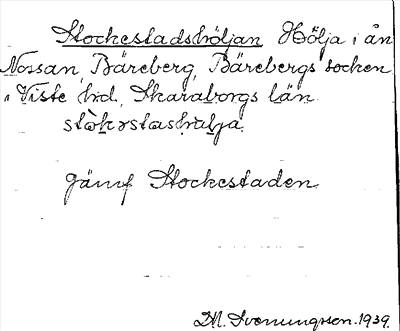 Stockestadshöljan Hölja i ån
Nossan, Bäreberg, Bärebergs socken
i Viste hrd, Skaraborgs län.
stòkəstashulja.
Jämf Stockestaden.
D.M. Svenungsson. 1939.